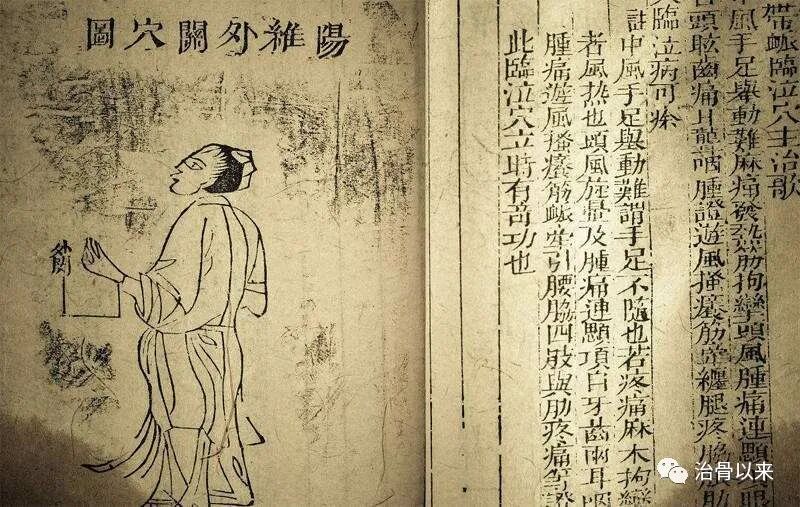 帶衇臨泣穴主治歌
中風手足舉動難麻痛發熱筋拘攣頭風腫痛連顋
頭眩齒痛耳聾咽腫證遊風搔癢筋牽纏腿疼脇
臨泣病可痊
註中風手足舉動難謂手足不隨也若疼痛麻木拘攣
者風熱也頭風旋暈及腫痛連顋項目牙齒兩耳咽
腫痛遊風搔癢筋衇牽引腰脇四肢與肋疼痛等證
此臨泣穴立時有奇功也
陽維外關穴圖
外關
治骨以来